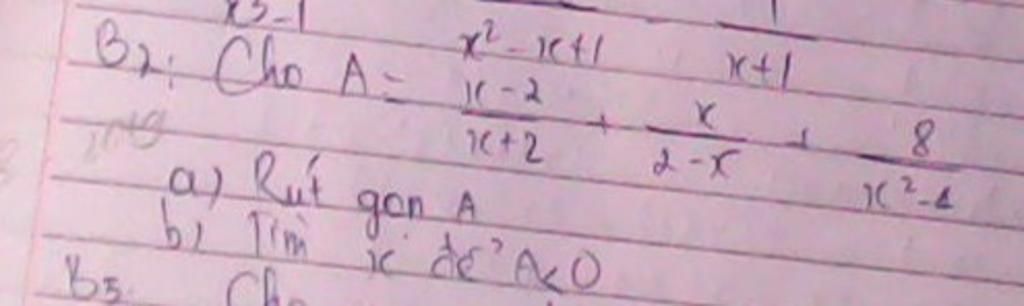 x³-1 / x²-x+1 1 / x+1
B2: Cho A = (x-2)/(x+2) + x/(2-x) + 8/(x²-4)
a) Rút gọn A
b) Tìm x để A<0
B5 Cho